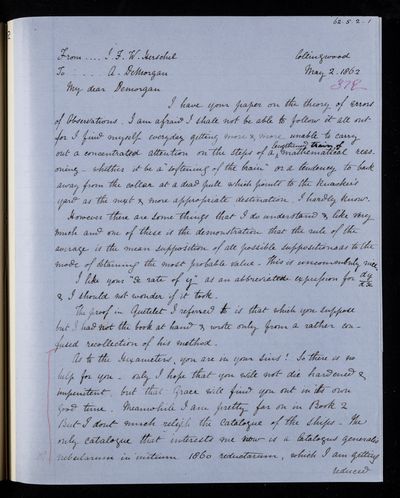 62.5.2.1
From .... J. F. W. Herschel Collingwood
To .... A. DeMorgan May 2. 1862
378
My dear Demorgan
I have your paper on the theory of errors
of Observations. I am afraid I shall not be able to follow it all out
for I find myself everyday getting more & more unable to carry
out a concentrated attention on the steps of a lengthened train of mathematical reas-
oning - whether it be a "softening of the brain" or a tendency to back
away from the collar at a dead pull which points to the Knacker's
yard as the next & more appropriate destination. I hardly know.
However there are some things that I do understand & like very
much and one of these is the demonstration that the rule of the
average is the mean supposition of all possible suppositions as to the
mode of obtaining the most probable value. This is uncommonly nice
I like your "x rate of y" as an abbreviated expression for dy/dx
& I should not wonder if it took.
The proof in Quetelet I referred to is that which you suppose
but I had not the book at hand & wrote only from a rather con-
fused recollection of his method.
As to the Hexameters, you are in your sins! So there is no
help for you - only I hope that you will not die hardened &
impenitent, but that Grace will find you out in its own
good time. Meanwhile I am pretty far on in Book 2
But I dont much relish the Catalogue of the Ships. The
only catalogue that interests me now is a Catalogus generalis
nebularum in initium 1860 reductarum, which I am getting
reduced